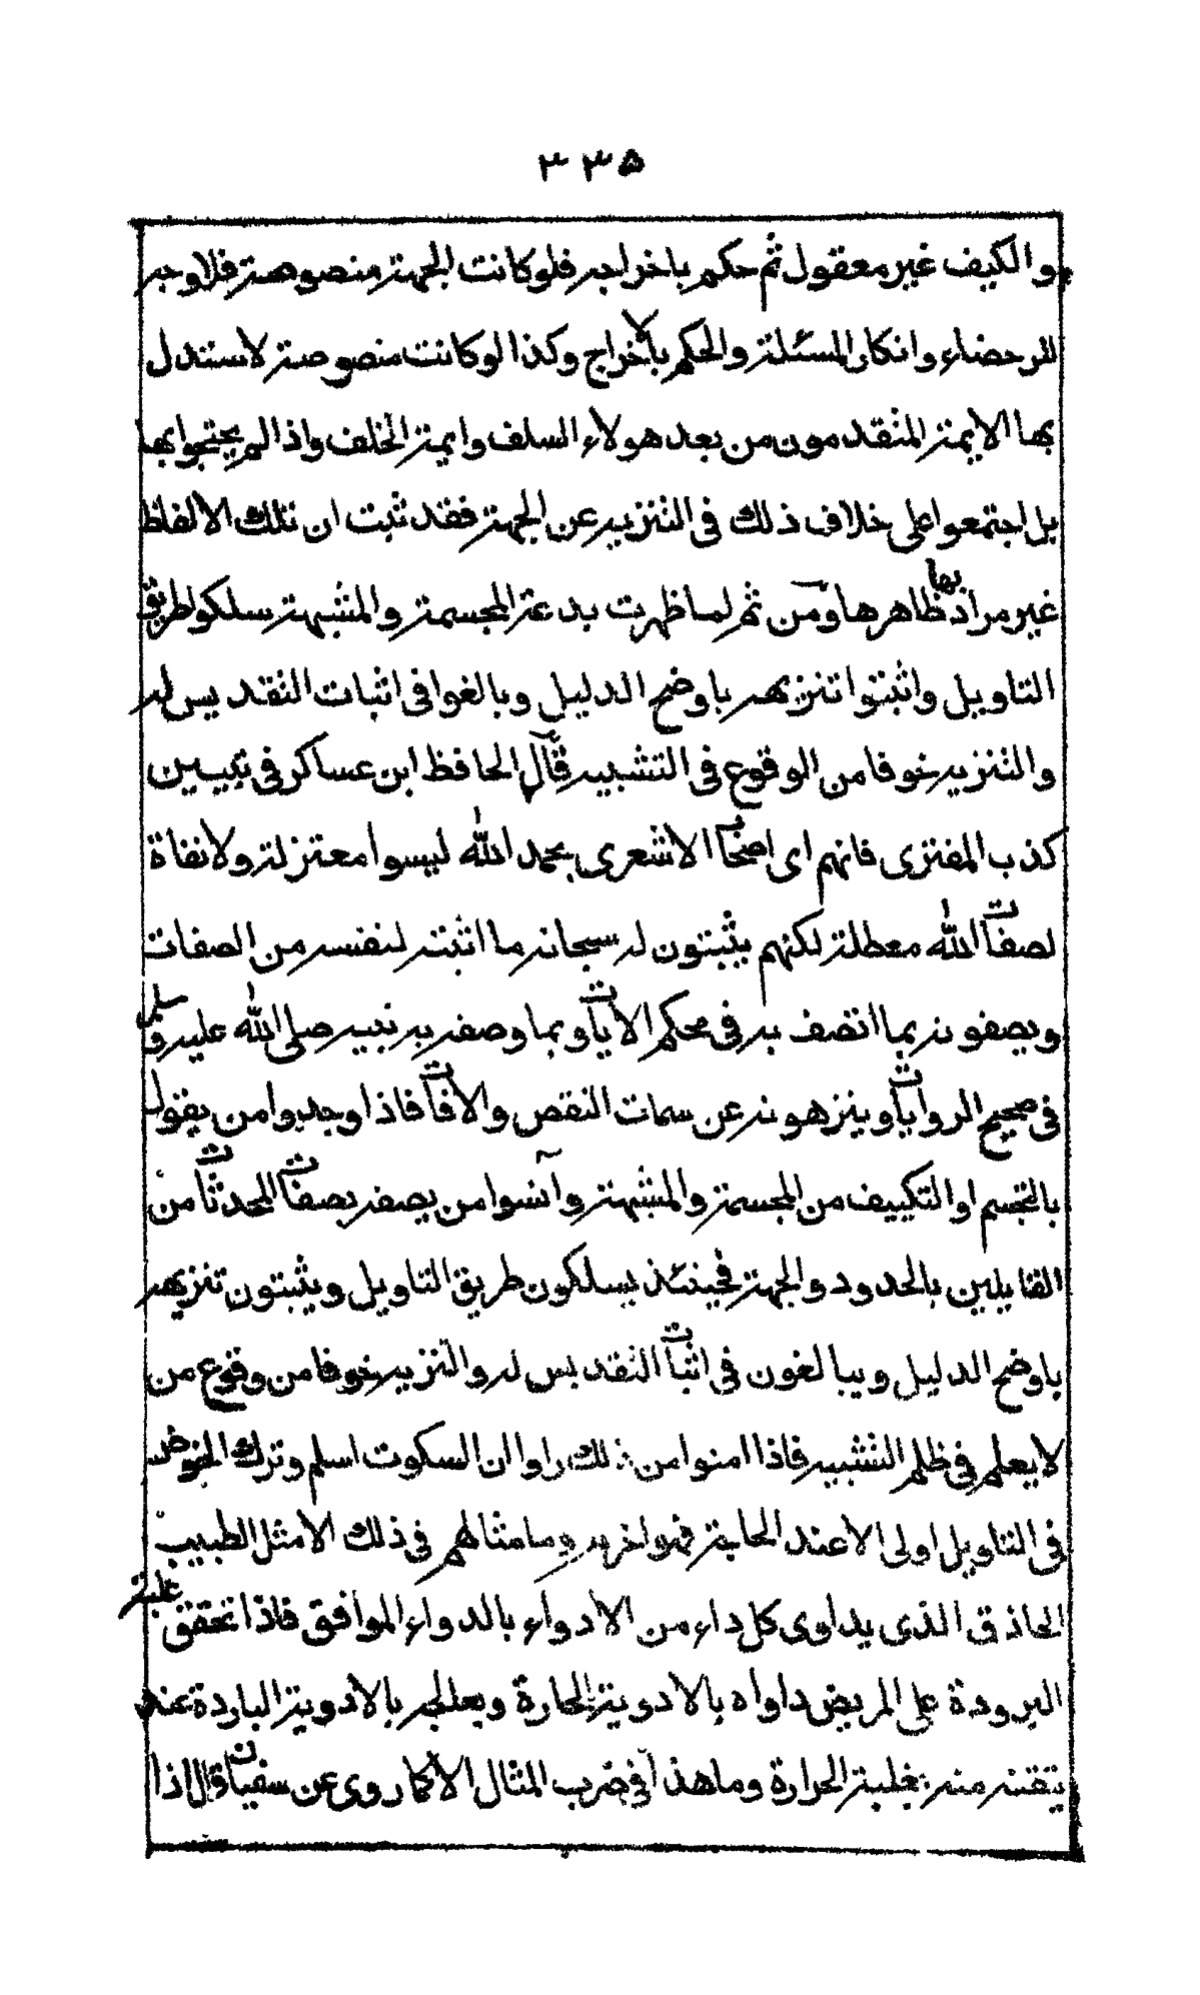 ٣٣٥
والكيف غير معقول ثم حكم باخراجه فلو كانت الجهة منصوصة فلا وجه
للرحضاء وانكار المسئلة والحكم بالاخراج وكذا لو كانت منصوصة لاستدل
بها الايمة المتقدمون من بعد هولاء السلف وايمة الخلف واذا لم يحتجوا بها
بل اجتمعوا على خلاف ذلك فى التنزيه عن الجهة فقد ثبت ان تلك الالفاظ
غير مراد بها ظاهرها ومن ثم لما ظهرت بدعة المجسمة والمشبهة سلكوا طريق
التاويل واثبتوا تنزيهه باوضح الدليل وبالغوا فى اثبات التقديس له
والتنزيه خوفا من الوقوع فى التشبيه قال الحافظ ابن عساكر فى تبيين
كذب المفترى فانهم اى اصحاب الاشعرى بحمد الله ليسوا معتزلة ولا نفاة
لصفات الله معطلة لكنهم يثبتون له سبحانه ما اثبته لنفسه من الصفات
ويصفونه بما اتصف به فى محكم الايات وبما وصفه به نبيه صلى الله عليه وسلم
فى صحيح الروايات وينزهونه عن سمات النقص والافات فاذا وجدوا من يقول
بالتجسم او التكييف من المجسمة والمشبهة وآنسوا من يصفه بصفات المحدثات من
القايلين بالحدود والجهة فحينئذ يسلكون طريق التاويل ويثبتون تنزيهه
باوضح الدليل ويبالغون فى اثبات التقديس له والتنزيه خوفا من وقوع من
لا يعلم فى ظلم التشبيه فاذا امنوا من ذلك راوا ان السكوت اسلم وترك الخوض
فى التاويل اولى الا عند الحاجة وما مثالهم فى ذلك الا مثل الطبيب
الحاذق الذى يداوى كل داء من الادواء بالدواء الموافق فاذا تحقق غلبة
البرودة على المريض داواه بالادوية الحارة ويعالجه بالادوية الباردة عند
تيقنه منه بغلبة الحرارة وما هذا فى ضرب المثال الا كما روى عن سفيان قال اذا